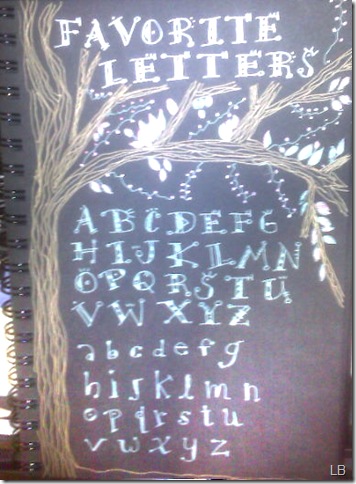 FAVORITE
LETTERS
A B C D E F G
H I J K L M N
O P Q R S T U
V W X Y Z
a b c d e f g
h i j k l m n
o p q r s t u
v w x y z
LB